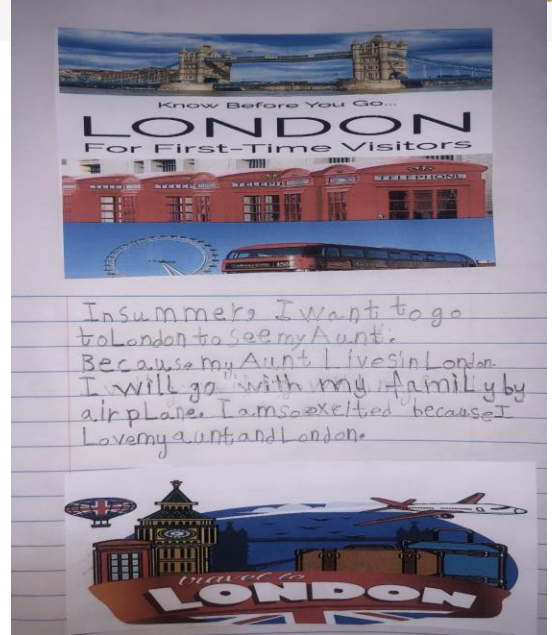 Know Before You Go...
LONDON
For First-Time Visitors
TELEPHONE
In summer, I want to go
to London to see my Aunt.
Because my Aunt lives in London.
I will go with my family by
airplane. I am so exeited because I
Love my aunt and London.
travel to
LONDON